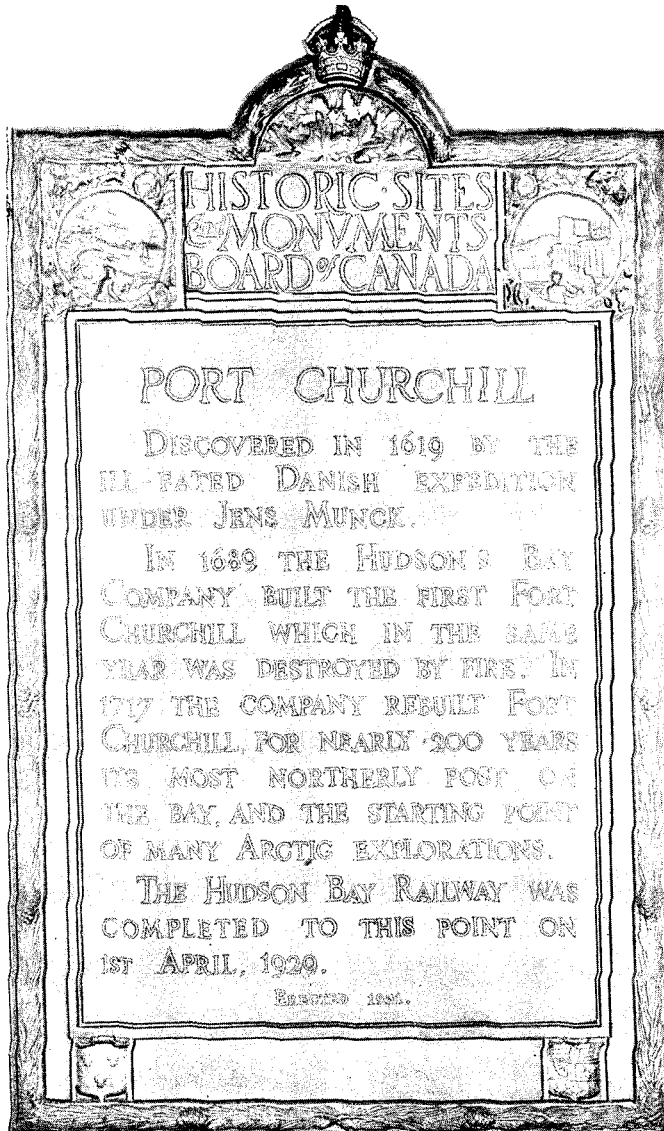 HISTORIC·SITES
and MONVMENTS
BOARD of CANADA
PORT CHURCHILL
DISCOVERED IN 1619 BY THE
ILL-FATED DANISH EXPEDITION
UNDER JENS MUNCK.
IN 1689 THE HUDSON'S BAY
COMPANY BUILT THE FIRST FORT
CHURCHILL WHICH IN THE SAME
YEAR WAS DESTROYED BY FIRE. IN
1717 THE COMPANY REBUILT FORT
CHURCHILL, FOR NEARLY 200 YEARS
ITS MOST NORTHERLY POST ON
THE BAY, AND THE STARTING POINT
OF MANY ARCTIC EXPLORATIONS.
THE HUDSON BAY RAILWAY WAS
COMPLETED TO THIS POINT ON
1ST APRIL, 1929.
ERECTED